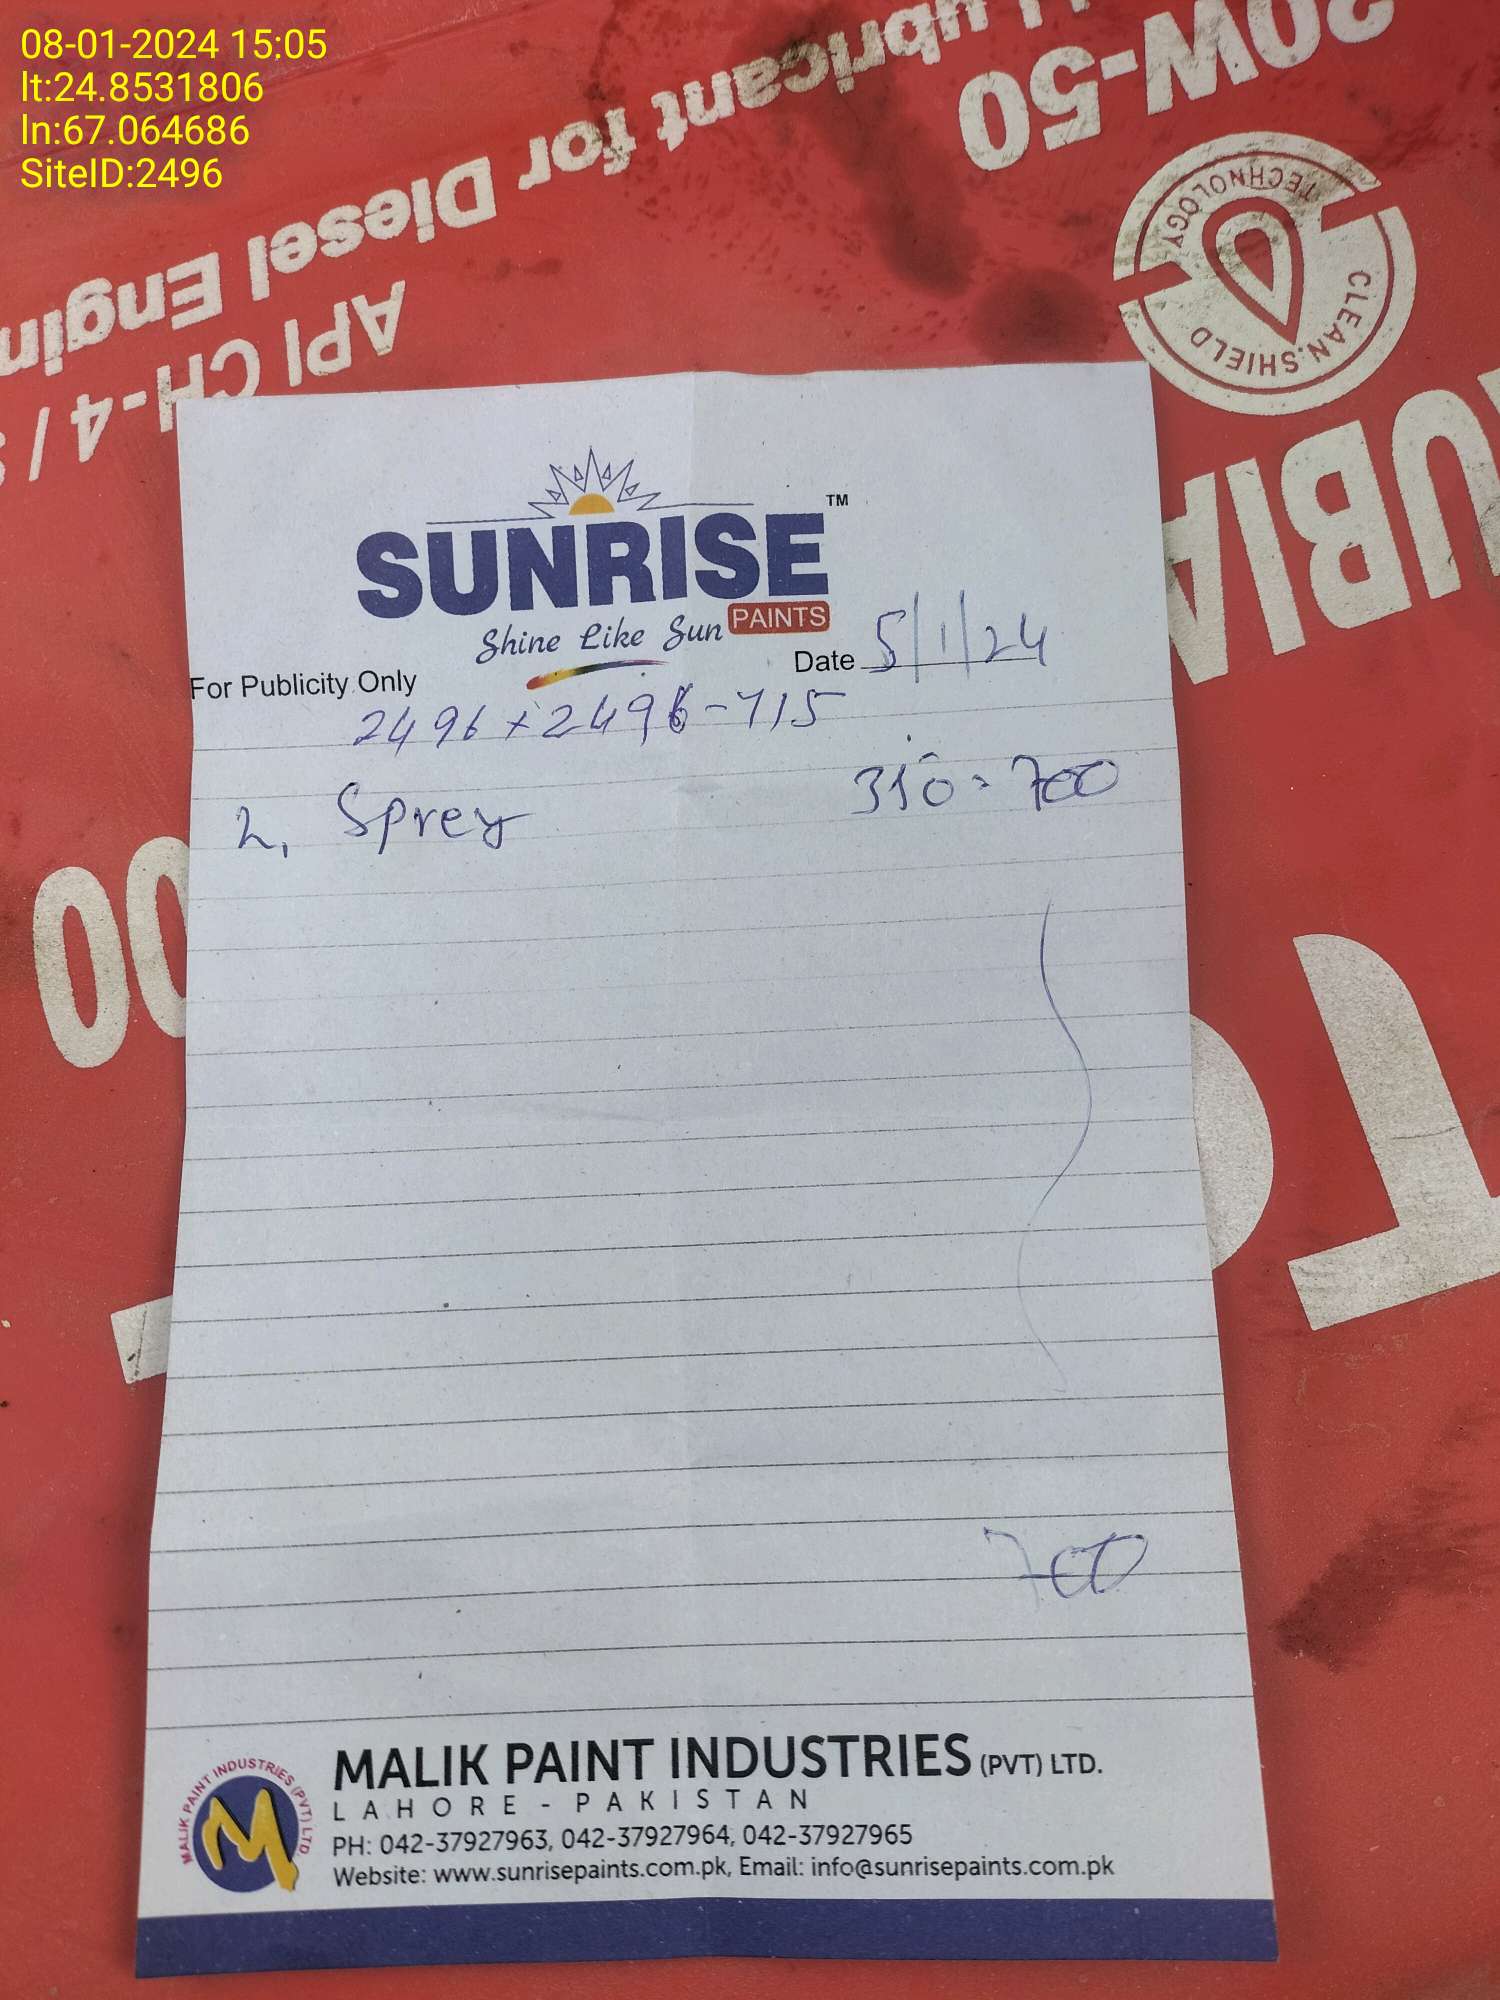 08-01-2024 15:05
lt:24.8531806
ln:67.064686
SiteID:2496
20W-50
Lubricant for Diesel Engin
API CH-4 / S
TECHNOLOGY
CLEAN.SHIELD
UBIA
00
SUNRISE TM
PAINTS
Shine Like Sun
For Publicity Only
Date 5/1/24
2496 + 2496-715
2, Sprey 350 = 700
700
MALIK PAINT INDUSTRIES (PVT) LTD
MALIK PAINT INDUSTRIES (PVT) LTD.
LAHORE - PAKISTAN
PH: 042-37927963, 042-37927964, 042-37927965
Website: www.sunrisepaints.com.pk, Email: info@sunrisepaints.com.pk